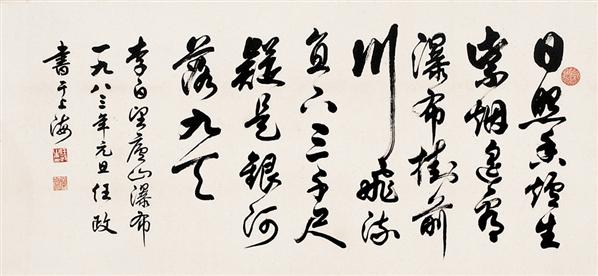 日照香爐生
紫烟遥看
瀑布掛前
川飛流
直下三千尺
疑是銀河
落九天
李白望廬山瀑布
一九八三年元旦任政
書于上海